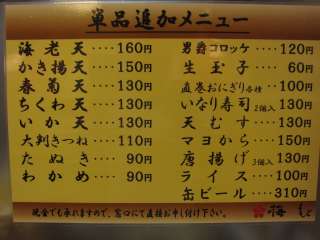 単品追加メニュー
海老天････160円
かき揚天････150円
春菊天････130円
ちくわ天････130円
いか天････130円
大判きつね････110円
たぬき････90円
わかめ････90円
男爵コロッケ････120円
生玉子････60円
直巻おにぎり各種････100円
いなり寿司2個入････130円
天むす････130円
マヨから････150円
唐揚げ3個入････130円
ライス････100円
缶ビール････310円
現金でも承れますので、窓口にて直接お申し付け下さい。
梅もと